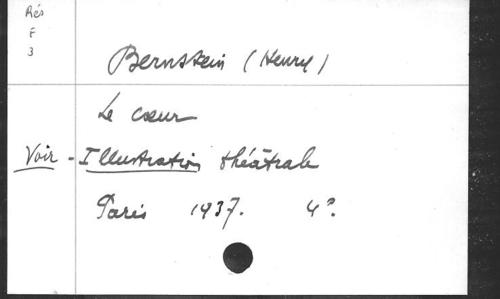 Rés
F
3
Bernstein (Henry)
Le cœur
Voir - Illustration théâtrale
Paris 1937. 4°.